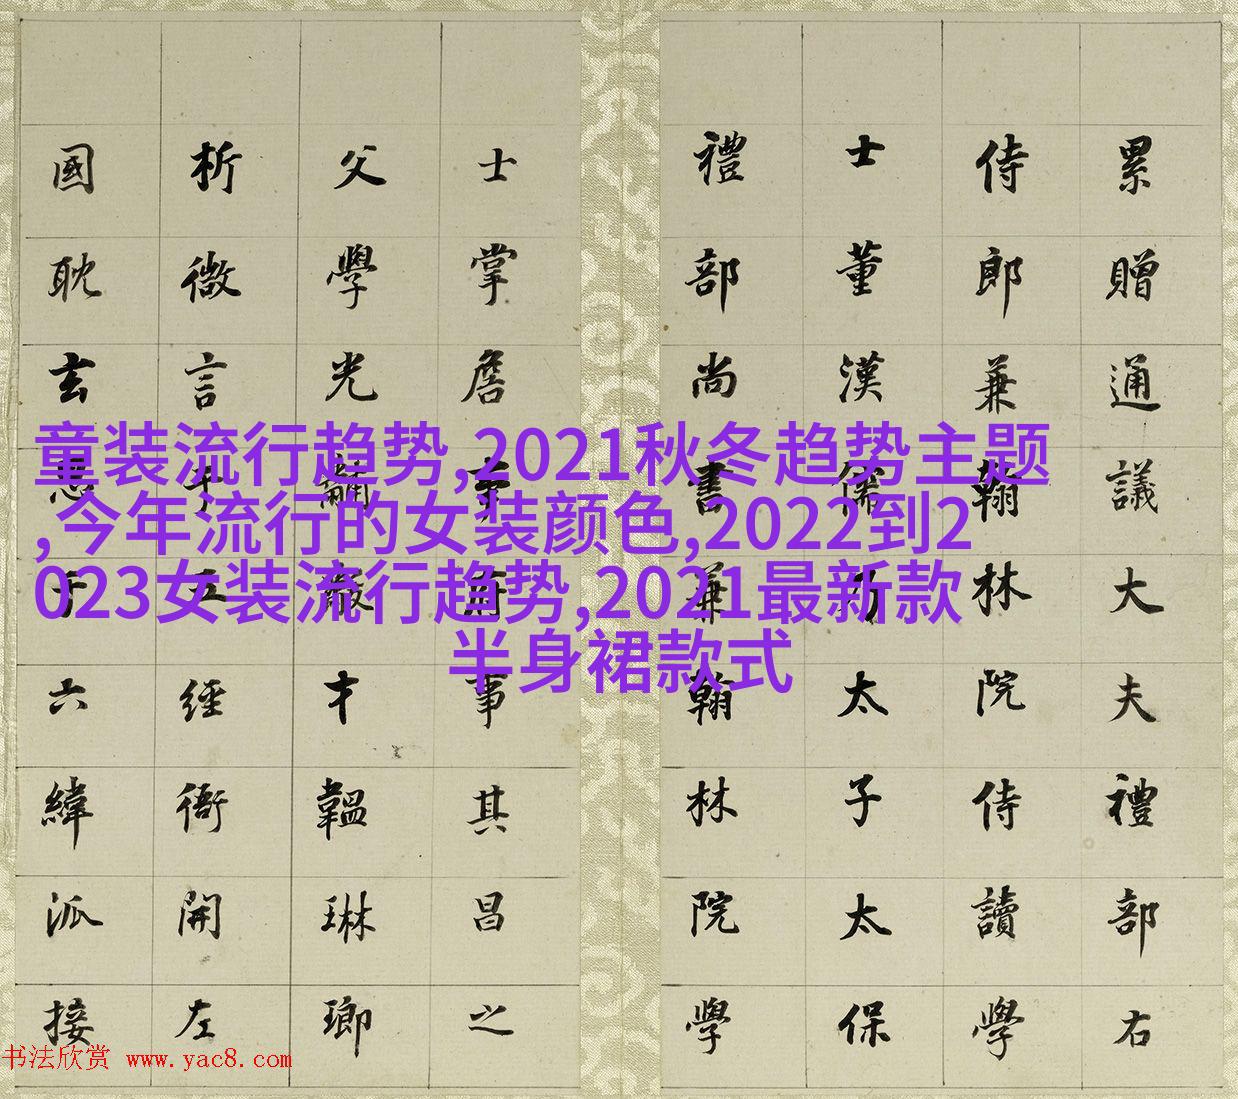 童装流行趋势,2021秋冬趋势主题
,今年流行的女装颜色,2022到2
023女装流行趋势,2021最新款
半身裙款式
累贈通議大夫禮部右
侍郎兼翰林院侍讀學
士董漢儒乃太子太保
禮部尚書兼翰林院學
士掌詹事府事其昌之
父學光黼黻才韞琳瑯
析微言于五經衙開左
國耽玄思于六緯派接
书法欣赏 www.yac8.com